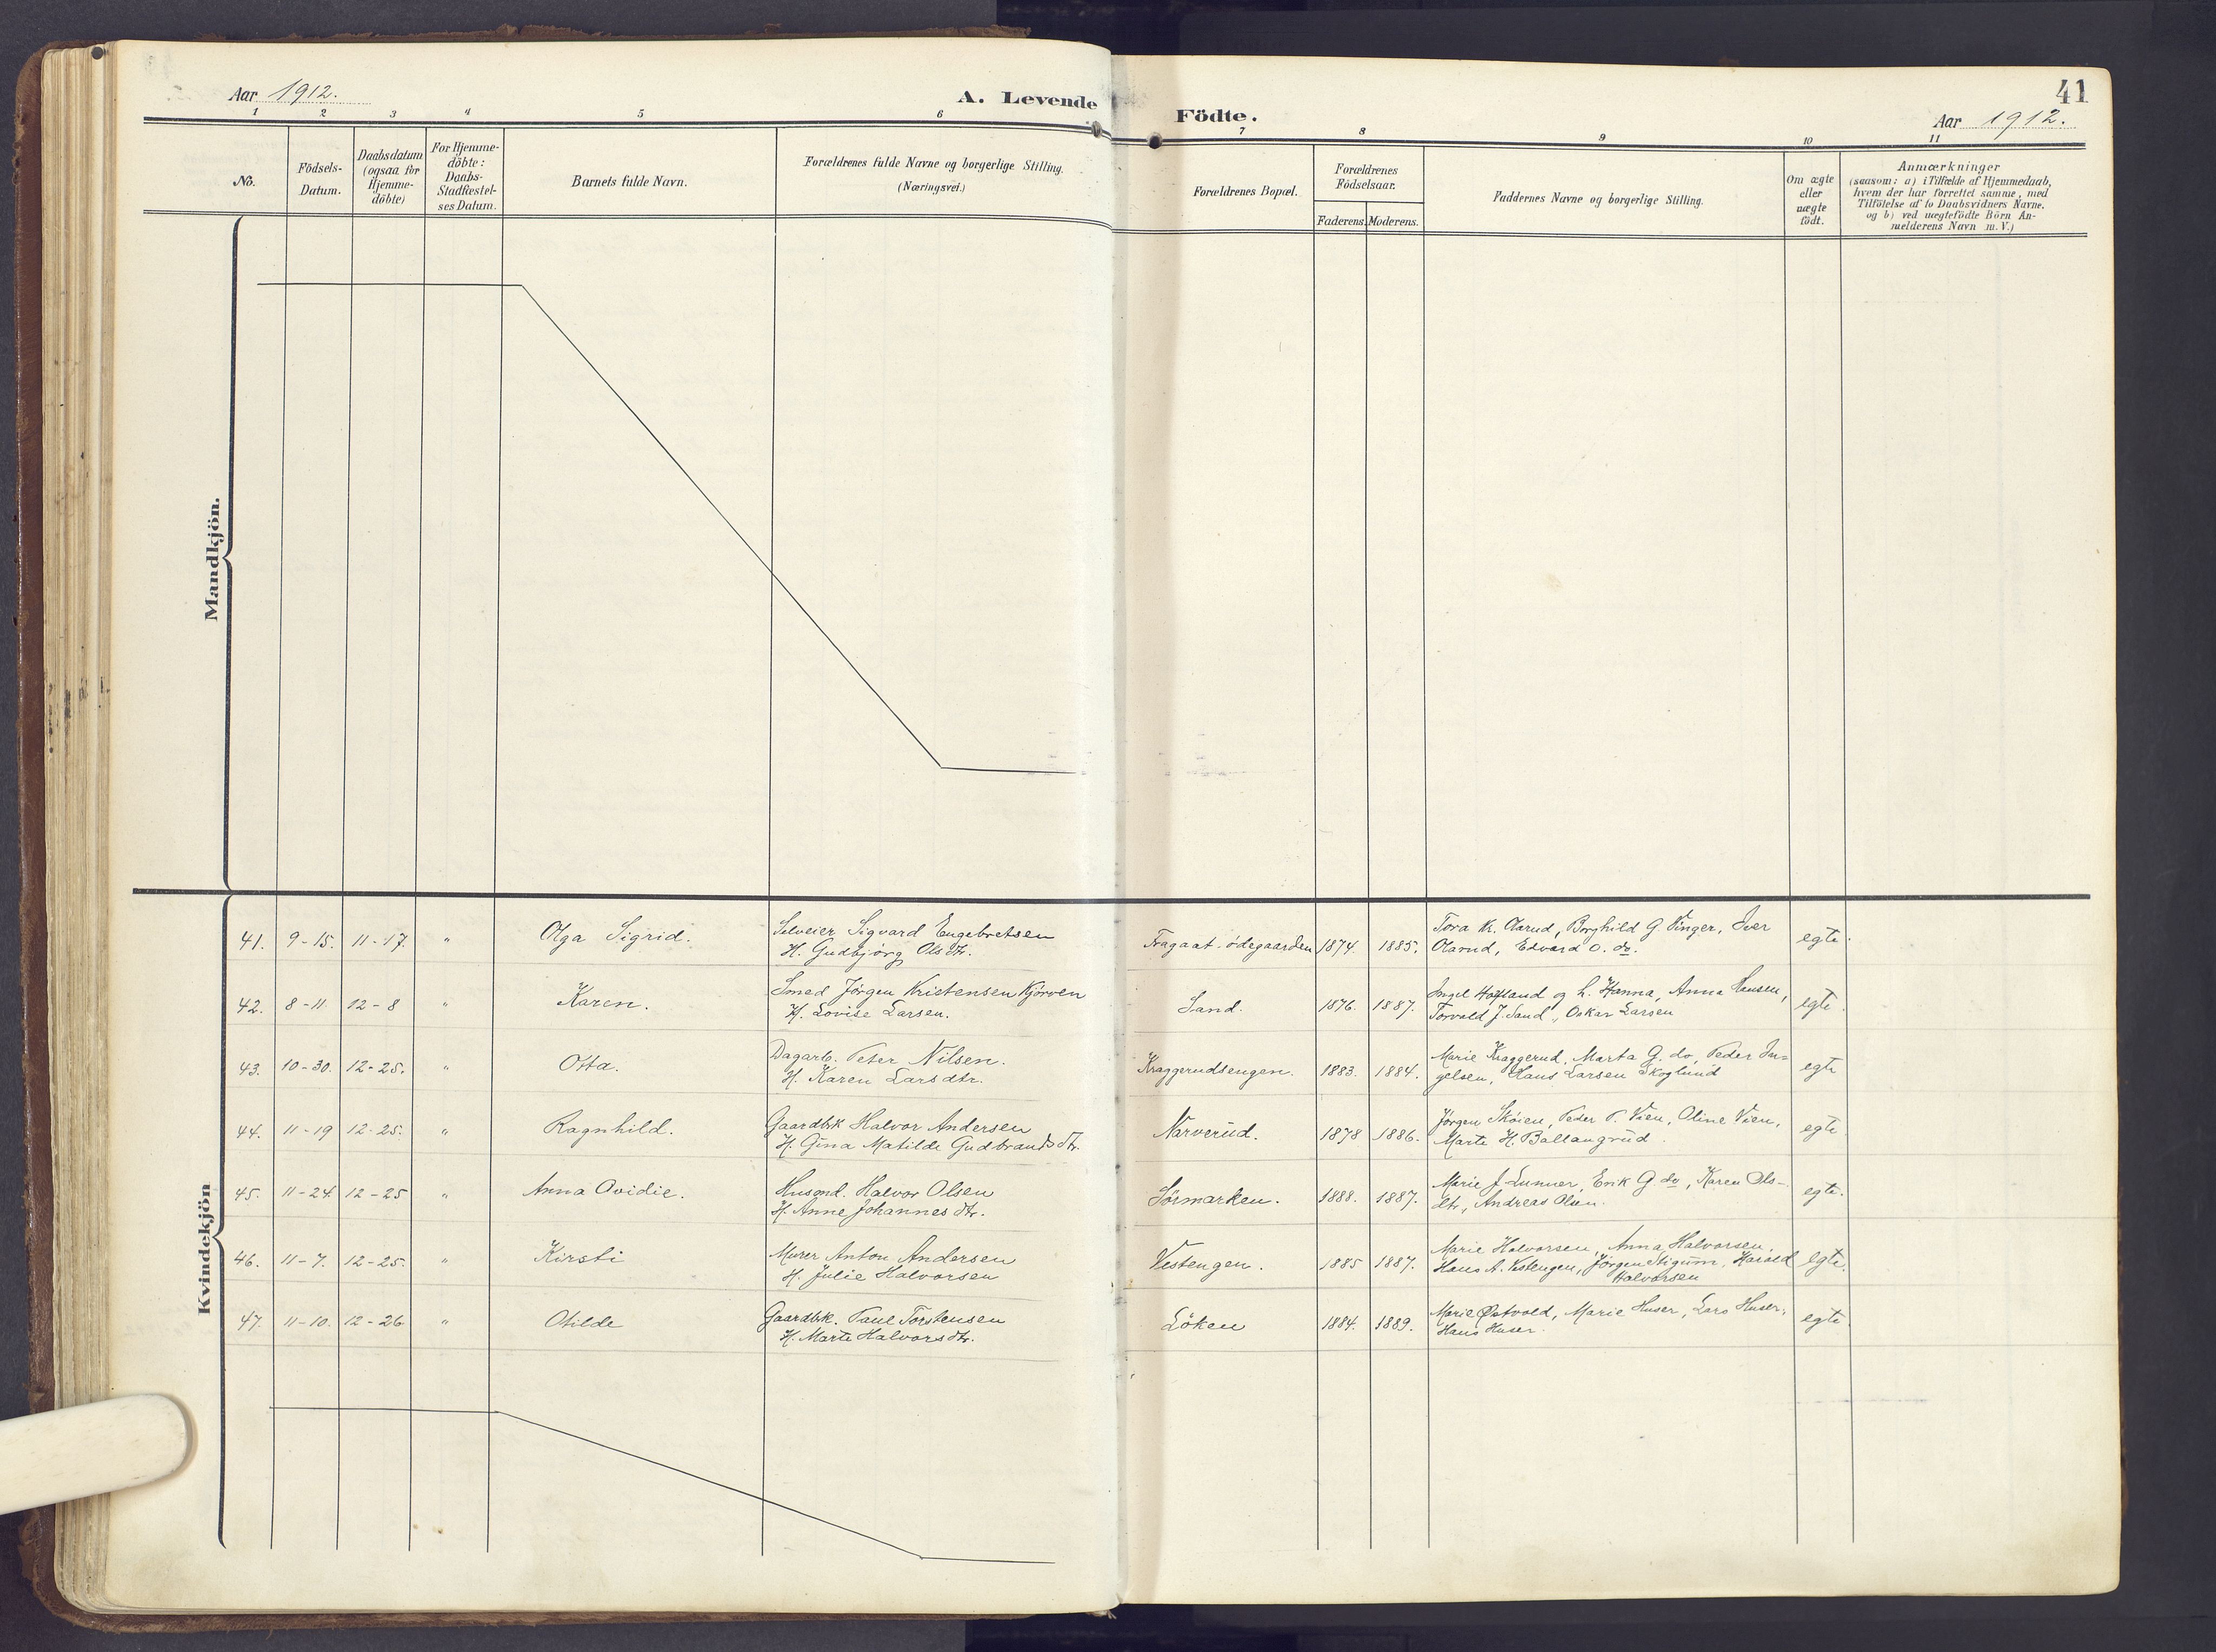 41
Aar 1912.
A. Levende Födte.
Aar 1912.
1 2 3 4 5 6 7 8 9 10 11
No.
Födsels-
Datum.
Daabsdatum
(ogsaa for
Hjemme-
döbte)
For Hjemme-
döbte:
Daabs-
Stadfæstel-
ses Datum.
Barnets fulde Navn.
Forældrenes fulde Navne og borgerlige Stilling.
(Næringsvei.)
Forældrenes Bopæl.
Forældrenes
Födselsaar.
Faderens. Moderens.
Faddernes Navne og borgerlige Stilling.
Om ægte
eller
uægte
födt.
Anmærkninger
(saasom: a) i Tilfælde af Hjemmedaab,
hvem der har forrettet samme, med
Tilföielse af to Daabsvidners Navne.
og b) ved uægtefödte Börn An-
melderens Navn m. V.)
Mandkjön.
Kvindekjön
41. 9-15. 11-17. " Olga Sigrid. Selveier Sigvard Engebretsen
H. Gudbjörg Olsdtr.
Tragaat-ødegaarden 1874. 1885. Tora K. Aarud, Borghild G. Vinger, Iver
Olarud, Edvard O. do. egte.
42. 8-11 12-8 " Karen. Smed Jörgen Kristensen Kjörven
H. Lovise Larsen.
Sand. 1876. 1887. og h. Hanna, Anna Hansen,
Torvald J. Sand, Oskar Larsen egte.
43. 10-30. 12-25. " Otta. Dagarb. Peter Nilsen.
H. Karen Larsdtr.
Kraggerudsengen. 1883. 1884. Marie Kraggerud, Marta G. do, Peder In-
gelsen, Hans Larsen Skoglund egte
44. 11-19 12-25. " Ragnhild. Gaardbk Halvor Andersen
H. Gina Matilde Gudbrandsdtr.
Narverud. 1878 1886. Jörgen Sköien, Peder P. Vien, Oline Vien,
Marte H. Ballangrud. egte.
45. 11-24. 12-25 " Anna Ovidie. Husmd. Halvor Olsen
H. Anne Johannesdtr.
Sörmarken. 1888. 1887. Marie J. Lunner, Erik G. do, Karen Ols-
dtr, Andreas Olsen. egte.
46. 11-7. 12-25. " Kirsti Murer Anton Andersen
H. Julie Halvorsen
Vestengen. 1885 1887. Marie Halvorsen, Anna Halvorsen,
Hans A. Vestengen, Jörgen Stigum, Harald
Halvorsen egte.
47. 11-10. 12-26 " Otilde Gaardbk. Paul Torstensen
H. Marte Halvorsdtr.
Löken 1884. 1889. Marie Østvold, Marie Huser, Lars Huser,
Hans Huser. egte.